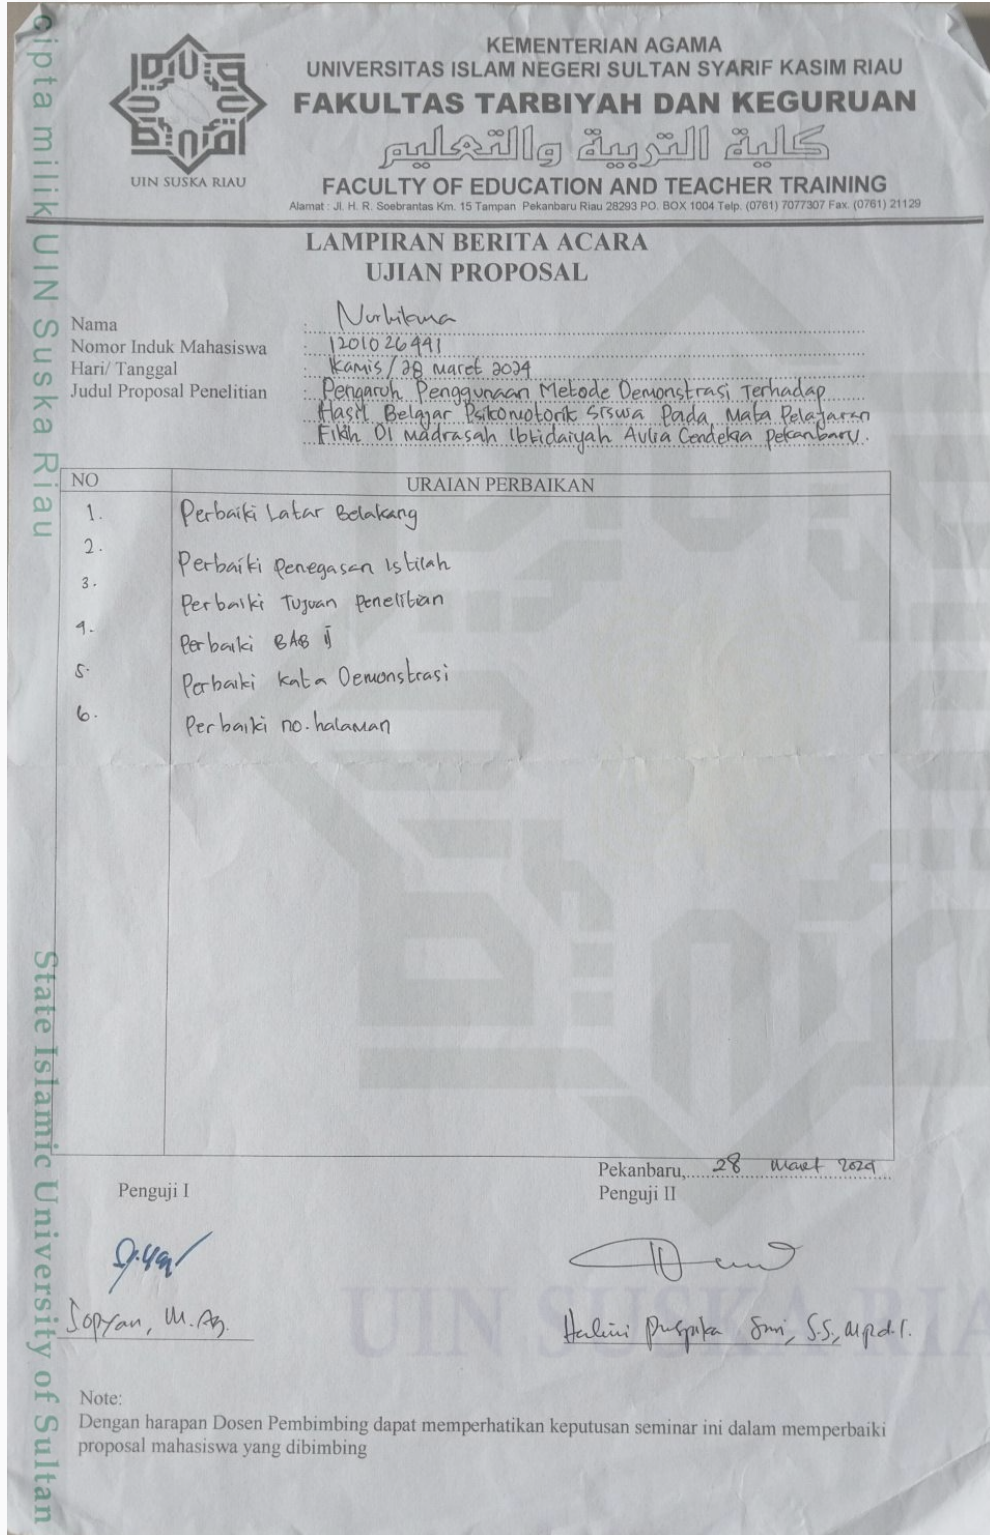 KEMENTERIAN AGAMA
UNIVERSITAS ISLAM NEGERI SULTAN SYARIF KASIM RIAU
FAKULTAS TARBIYAH DAN KEGURUAN
كلية التربية والتعليم
FACULTY OF EDUCATION AND TEACHER TRAINING
Alamat : Jl. H. R. Soebrantas Km. 15 Tampan Pekanbaru Riau 28293 PO. BOX 1004 Telp. (0761) 7077307 Fax. (0761) 21129
UIN SUSKA RIAU
LAMPIRAN BERITA ACARA
UJIAN PROPOSAL
Nama : Nurhikma
Nomor Induk Mahasiswa : 1201026441
Hari/ Tanggal : Kamis/28 Maret 2024
Judul Proposal Penelitian : Pengaruh Penggunaan Metode Demonstrasi Terhadap
Hasil Belajar Psikomotorik Siswa Pada Mata Pelajaran
Fikih Di Madrasah Ibtidaiyah Aulia Cendekia Pekanbaru.
NO URAIAN PERBAIKAN
1. Perbaiki Latar Belakang
2. Perbaiki Penegasan Istilah
3. Perbaiki Tujuan Penelitian
4. Perbaiki BAB II
5. Perbaiki Kata Demonstrasi
6. Perbaiki no. halaman
Pekanbaru, 28 Maret 2024
Penguji I Penguji II
Sopyan, M.Ag. Halimi S.S., M.Pd.I.
Note:
Dengan harapan Dosen Pembimbing dapat memperhatikan keputusan seminar ini dalam memperbaiki
proposal mahasiswa yang dibimbing
cipta milik UIN Suska Riau
State Islamic University of Sultan
UIN SUSKA RIA